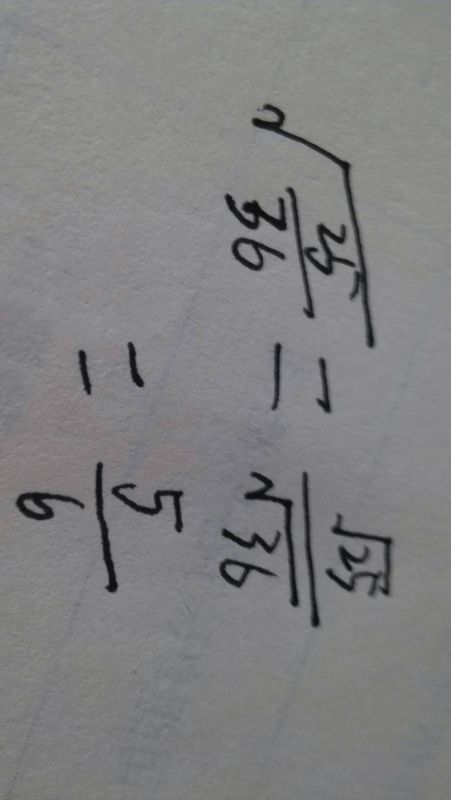 √(25/36) = √25/√36
= 5/6